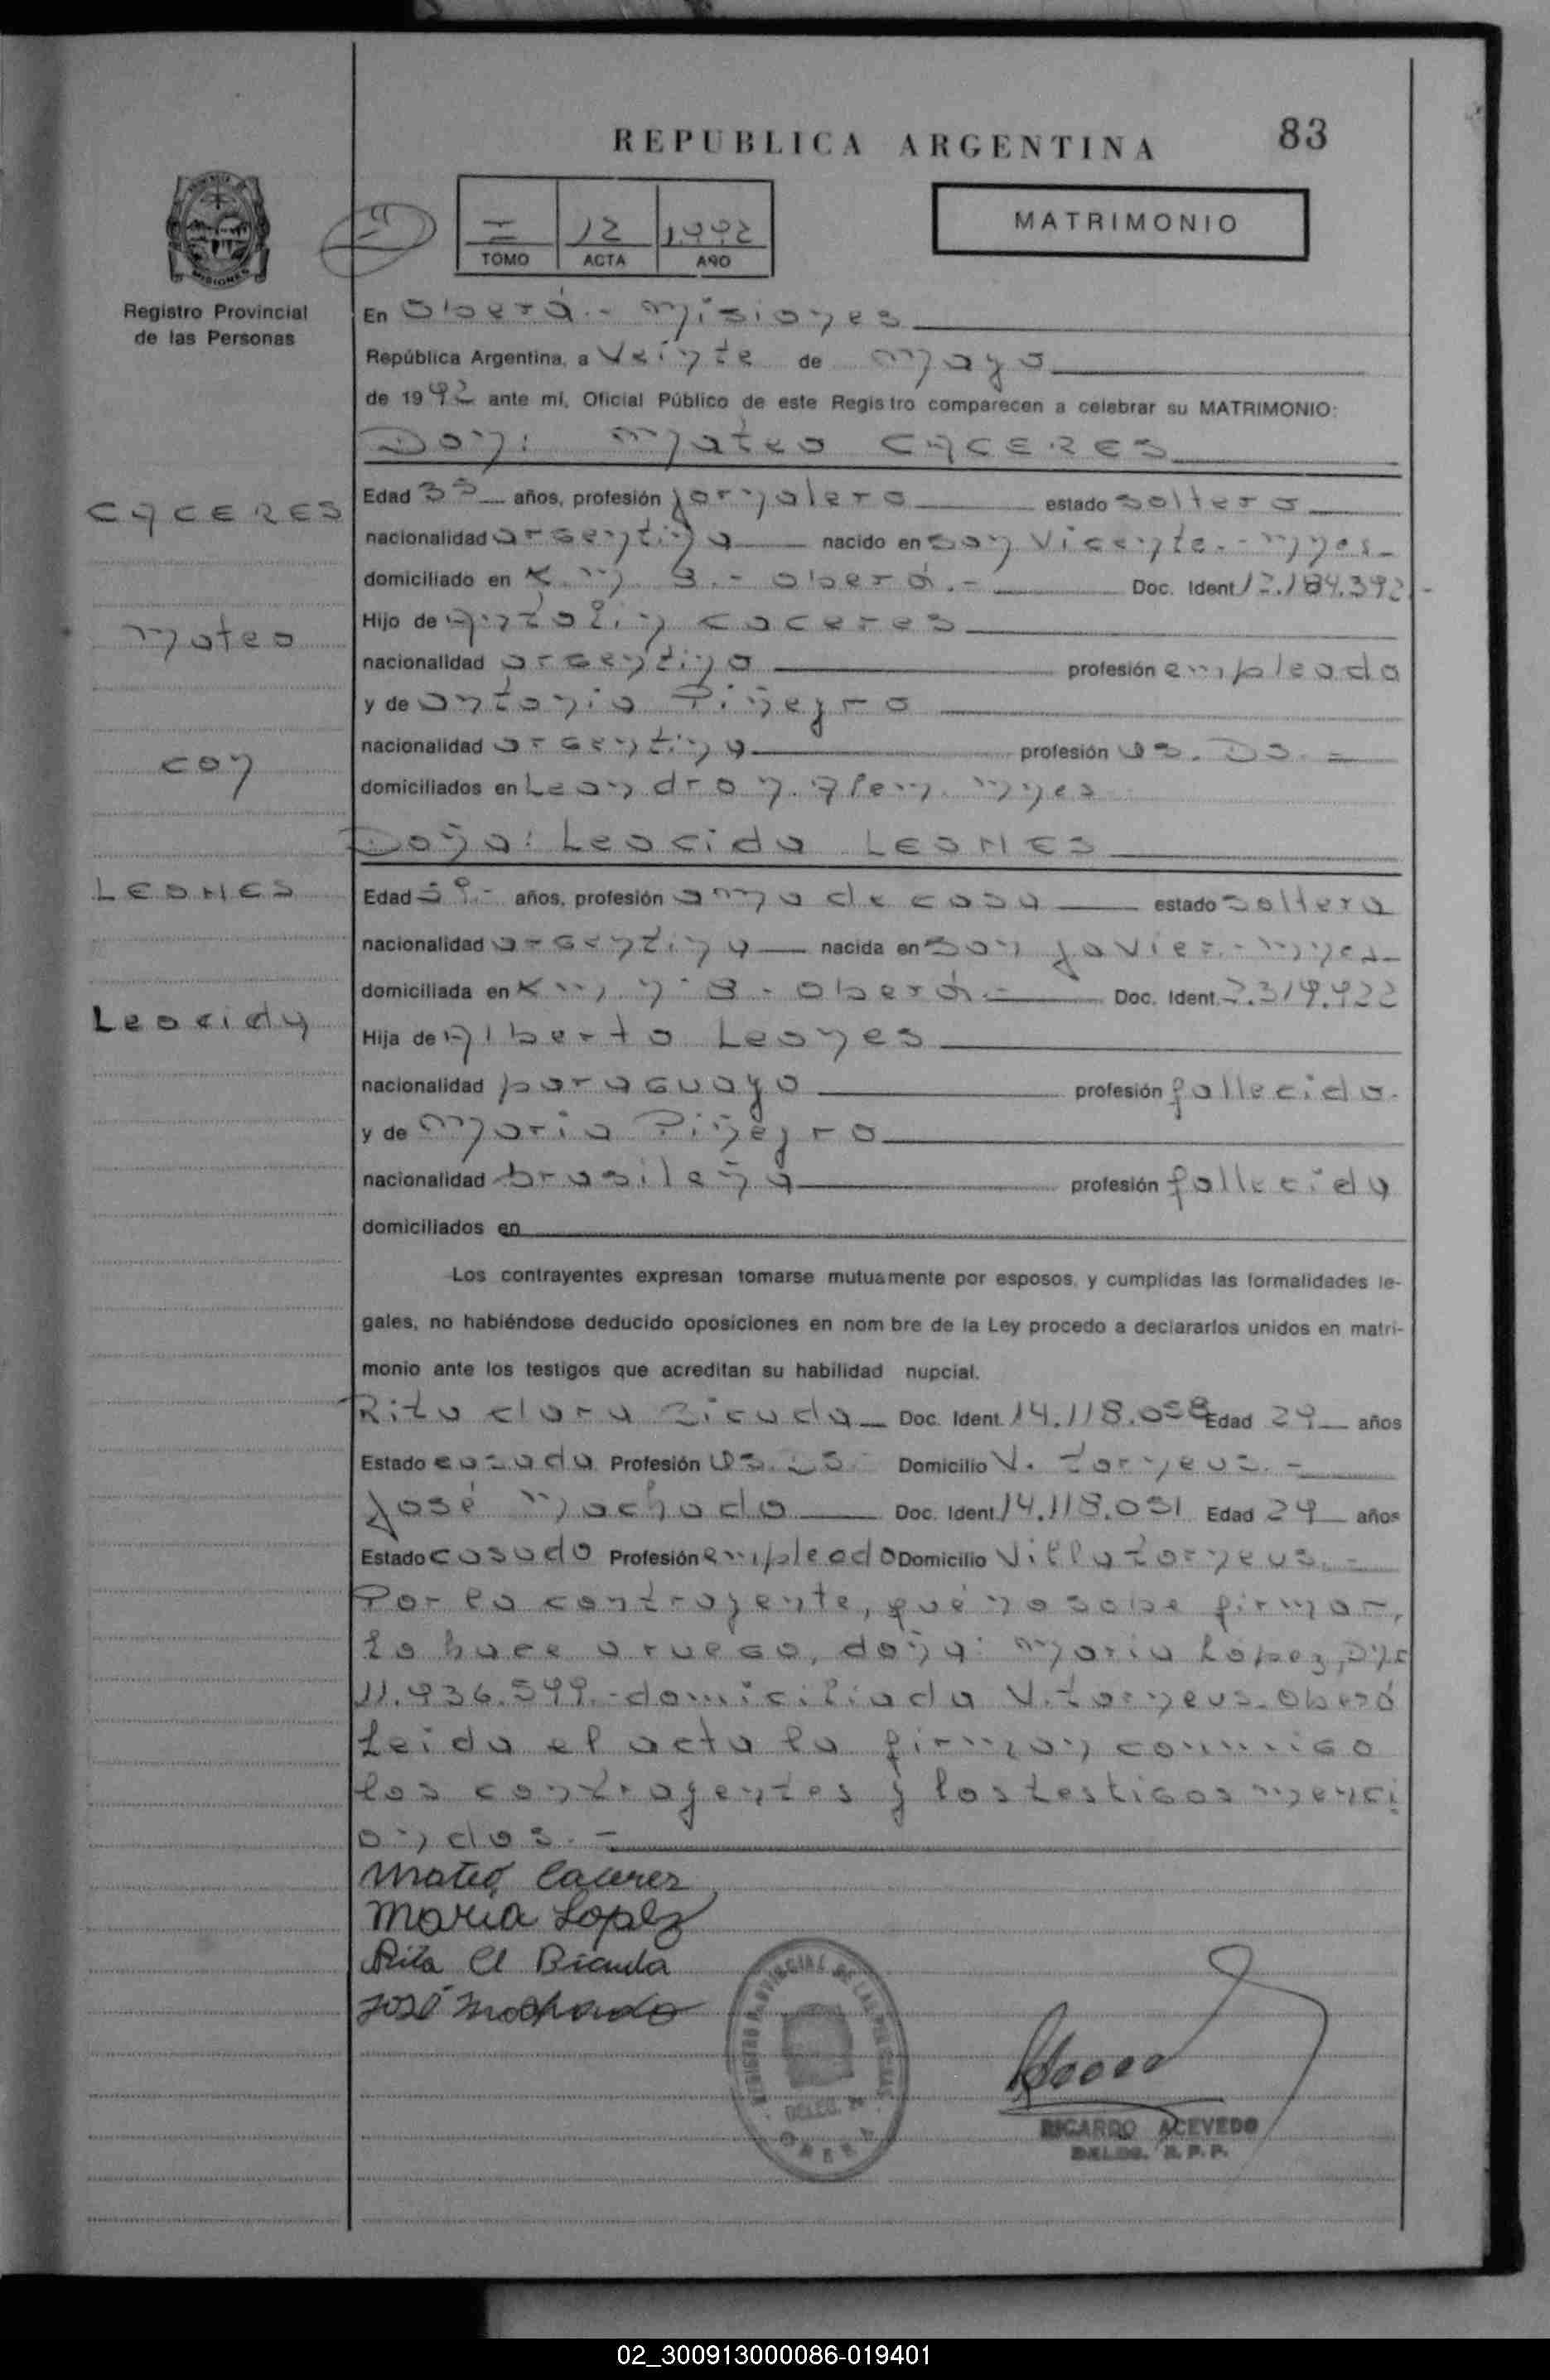 REPUBLICA ARGENTINA
83
MATRIMONIO
I 12 1992
TOMO ACTA AÑO
MISIONES
Registro Provincial
de las Personas
En Oberá.- Misiones
República Argentina, a Veinte de mayo
de 1992 ante mí, Oficial Público de este Registro comparecen a celebrar su MATRIMONIO:
Don: Mateo CACERES
CACERES
Mateo
con
LEONES
Leocida
Edad años, profesión jornalero estado soltero
nacionalidad argentina nacido en San Vicente.- Mnes-
domiciliado en Km 8.- Oberá.- Doc. Ident. 12.184.392.-
Hijo de Antolin Caceres
nacionalidad argentina profesión empleado
y de Antonia Piñeyro
nacionalidad argentina profesión qs. Ds.-
domiciliados en Leandro N. Alem. Mnes
Doña: Leocida LEONES
Edad 39.- años, profesión ama de casa estado soltera
nacionalidad argentina nacida en San Javier.- Mnes-
domiciliada en Km nº 8 - Oberá.- Doc. Ident.
Hija de Alberto Leones
nacionalidad paraguayo profesión fallecido.
y de Maria Piñeyro
nacionalidad brasileña profesión fallecida
domiciliados en
Los contrayentes expresan tomarse mutuamente por esposos, y cumplidas las formalidades le-
gales, no habiéndose deducido oposiciones en nom bre de la Ley procedo a declararlos unidos en matri-
monio ante los testigos que acreditan su habilidad nupcial.
Rita Clara Bicuda Doc. Ident. 14.118.058 Edad 29 años
Estado casada Profesión qs. Ds. Domicilio V. torneus.-
José Machado Doc. Ident. 14.118.031 Edad 29 años
Estado casado Profesión empleado Domicilio Villa torneus.-
Por la contrayente, qué no sabe firmar,
lo hace a ruego, doña: Maria López, Dni
11.936.599.- domiciliada V. torneus. Oberá
Leida el acta la firman conmigo
los contrayentes y los testigos menci
ondos.-
Mateo Caceres
Maria Lopez
Rita Cl Bicuda
José Machado
REGISTRO PROVINCIAL DE LAS PERSONAS
DELEG.
OBERA
RICARDO ACEVEDO
DELEG. R. P. P.
02_300913000086-019401